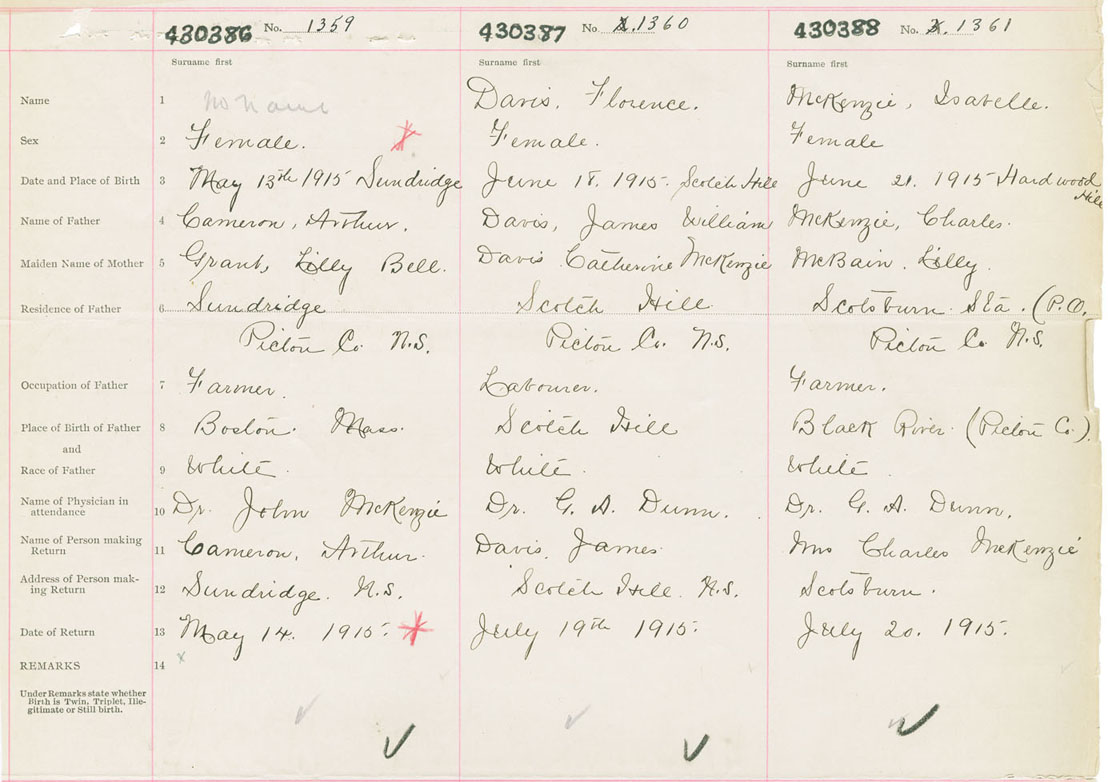 430386 No. 1359 430387 No. 1360 430388 No. 1361
Surname first Surname first Surname first
Name 1 no name Davis, Florence. McKenzie, Isabelle.
Sex 2 Female. Female. Female
Date and Place of Birth 3 May 13th 1915 Sundridge June 18. 1915. Scotch Hill June 21. 1915 Hardwood Hill
Name of Father 4 Cameron, Arthur. Davis, James William McKenzie, Charles.
Maiden Name of Mother 5 Grant, Lilly Bell. Davis Catherine McKenzie McBain. Lilly.
Residence of Father 6 Sundridge Scotch Hill Scotsburn. Sta. (P.O.
Pictou Co. N.S. Pictou Co. N.S. Pictou Co. N.S.
Occupation of Father 7 Farmer. Labourer. Farmer.
Place of Birth of Father 8 Boston. Mass. Scotch Hill Black River. (Pictou Co.)
and
Race of Father 9 White. White. White.
Name of Physician in
attendance 10 Dr. John McKenzie Dr. G. A. Dunn. Dr. G. A. Dunn.
Name of Person making
Return 11 Cameron, Arthur. Davis, James. Mrs Charles McKenzie
Address of Person mak-
ing Return 12 Sundridge. N.S. Scotch Hill. N.S. Scotsburn.
Date of Return 13 May 14. 1915. July 19th 1915. July 20. 1915.
REMARKS 14
Under Remarks state whether
Birth is Twin, Triplet, Ille-
gitimate or Still birth.